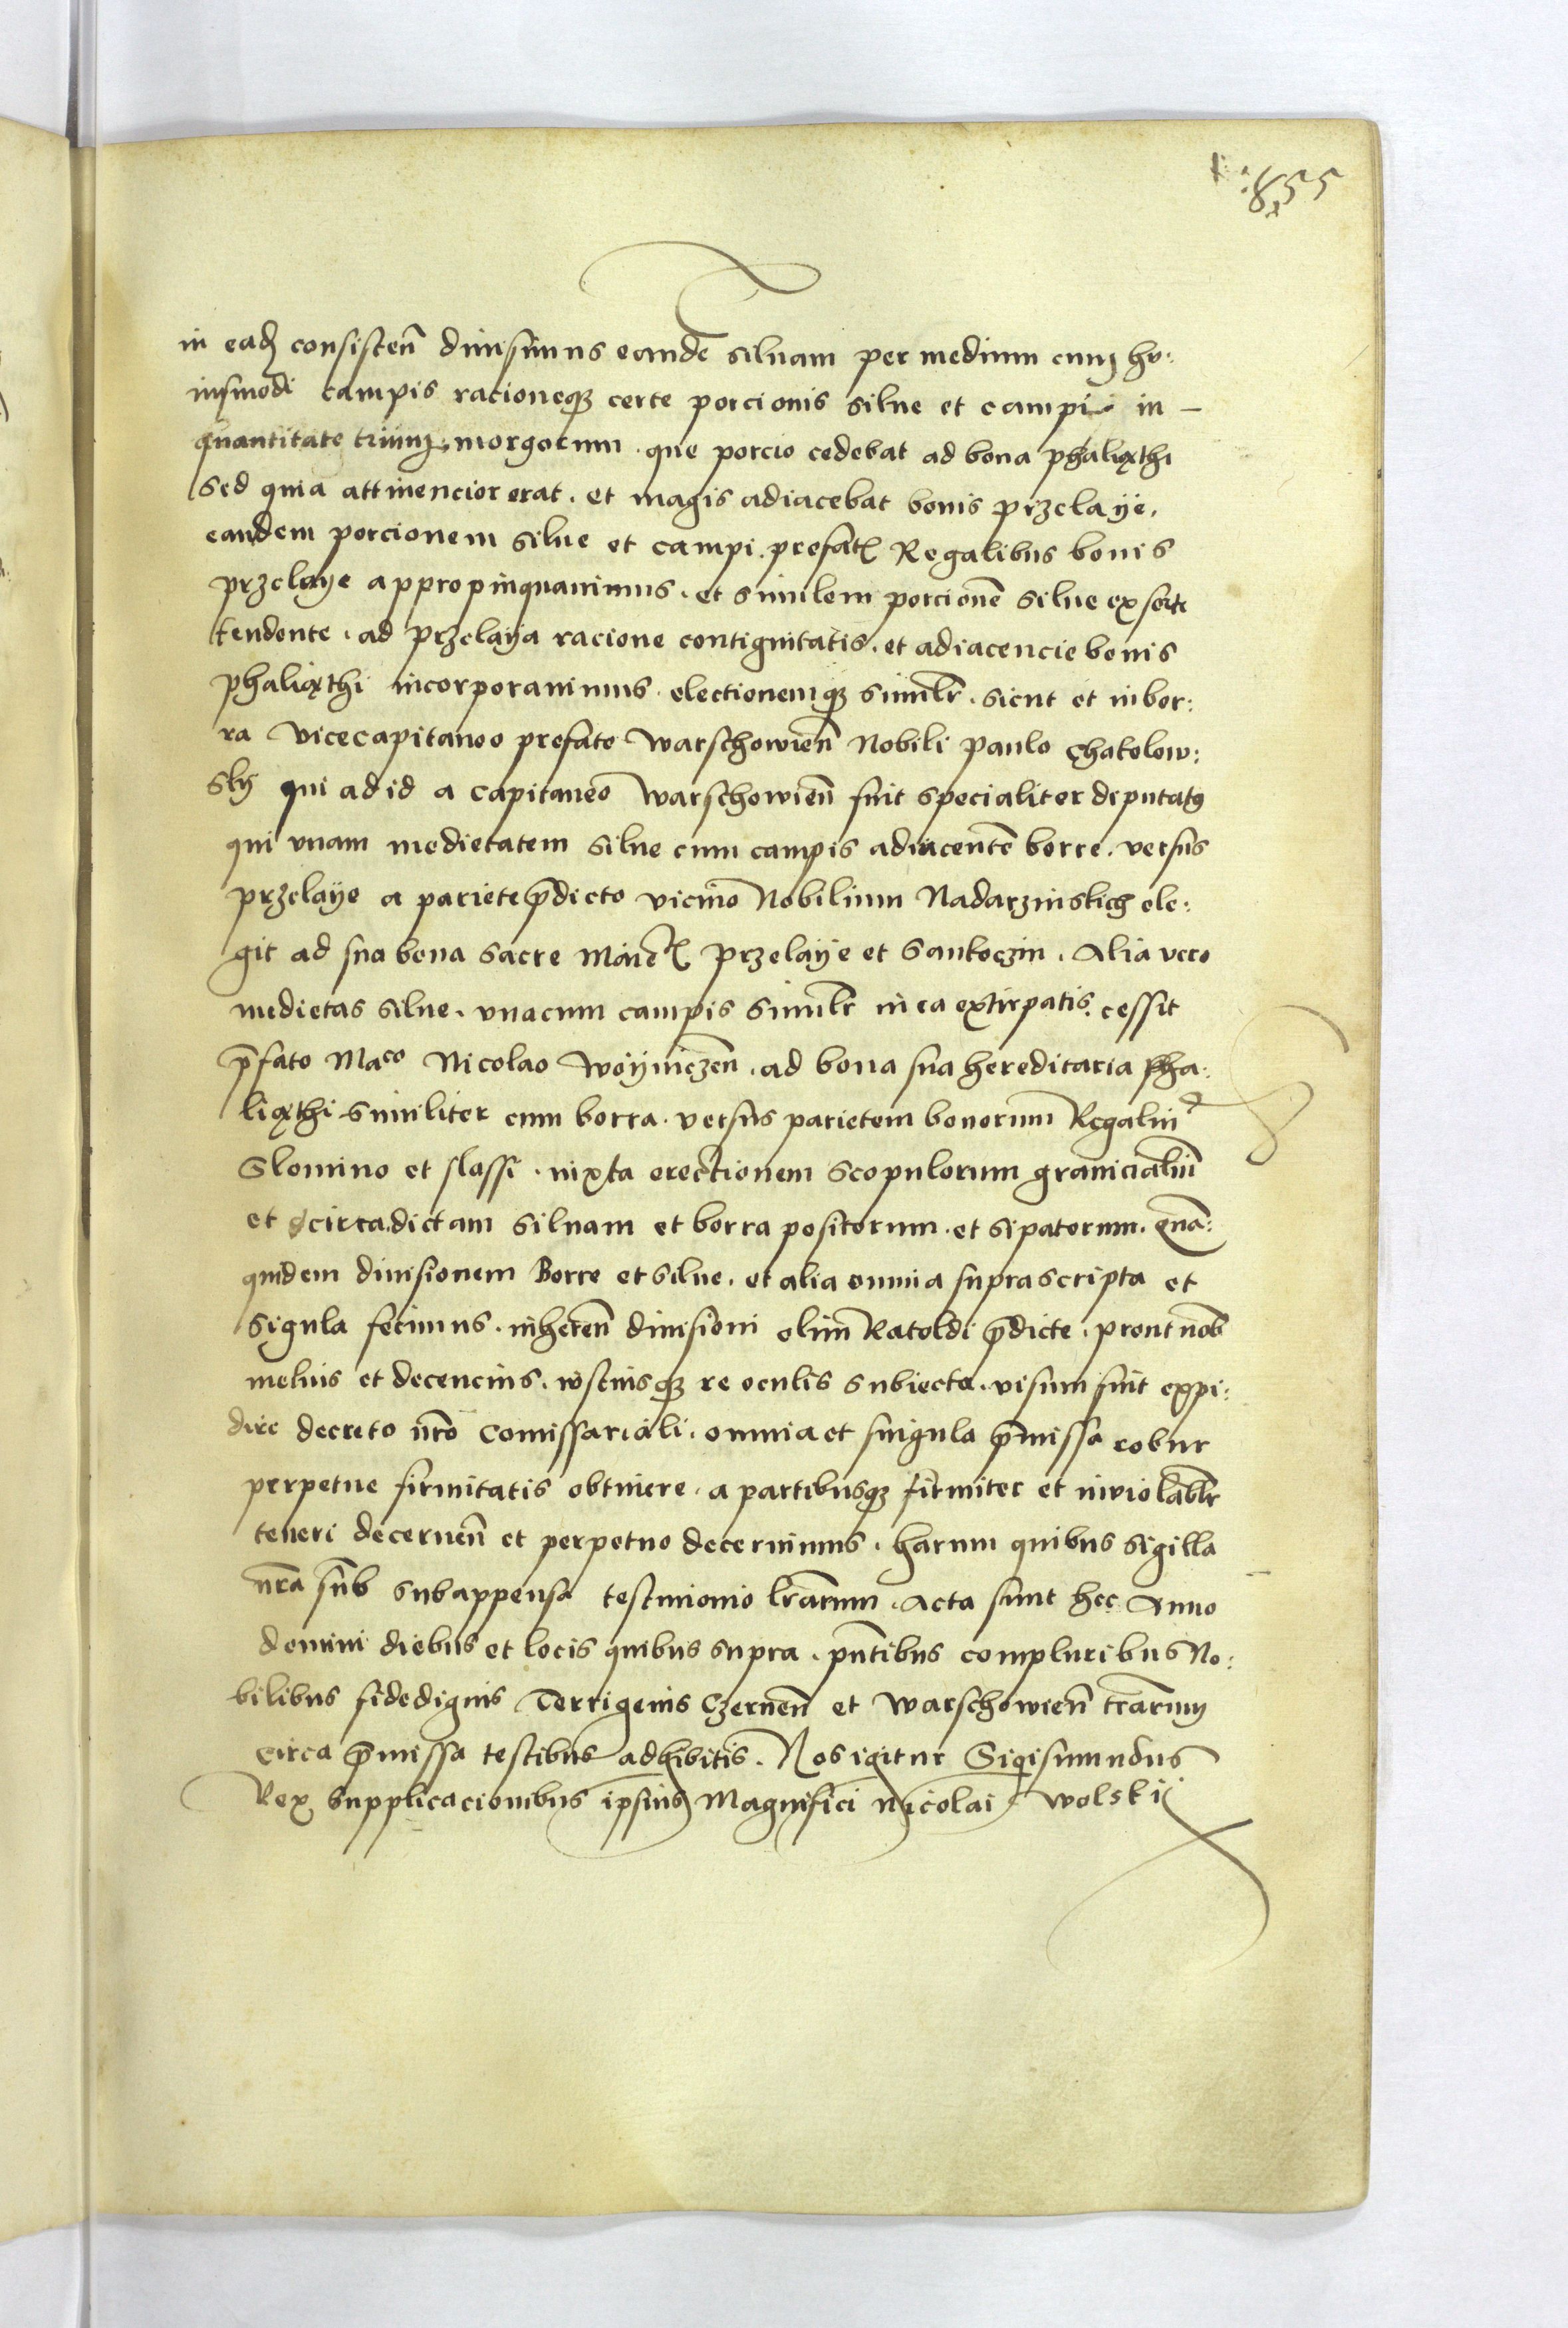 855
in eadē consisteñ diuisimus eandē siluam per medium cum hu:
iusmodi campis racioneqꝫ certe porcionis silue et campi in -
quantitate trium morgorum . que porcio cedebat ad bona phaliąthi
Sed quia attinencior erat . et magis adiacebat bonis przelaÿe .
eandem porcionem silue et campi . prefat̄ Regalibus bonis
przelaye appropinquauimus . et similem porcionē silue ex sorte
tendente . ad przelaÿa racione contiguitatis . et adiacencie bonis
phaliąthi incorporauimus . electionemqꝫ similr̄ . sicut et in bor:
ra vicecapitaneo prefato warschowieñ Nobili paulo chatolow:
skÿ qui ad id a capitaneo warschowieñ fuit specialiter deputatꝯ
qui vnam medietatem silue cum campis adiacentē borre . versus
przelaÿe a pariete p̄dicto vicino Nobilium Nadarzinskich ele:
git ad sua bona sacre Maiēt̄ Przelaÿe et Santoczin . Alia vero
medietas silue . vnacum campis similr̄ in ea extirpatis . cessit
p̄fato Maco Nicolao woÿniczeñ . ad bona sua hereditaria pha:
liąthi similiter cum borra . versus parietem bonorum Regaliū
Slomino et slassi . iuxta erectionem scopulorum granicialiū
et circa dictam siluam et borra positorum . et sipatorum . quā:
quidem diuisionem Borre et silue . et alia omnia suprascripta et
sigula fecimus . inhereñ diuisioni olim Ratoldi p̄dicte . prout nob̄
melius et decencius . iustiusqꝫ re oculis subiecta . visum fuit expi:
dire decreto nr̄o Comissariali . omnia et singula p̄missa robur
perpetue firmitatis obtinere . a partibusqꝫ firmiter et inuiolablr̄
teneri decerneñ et perpetuo decernimus . harum quibus sigilla
nr̄a sūb subappensa testimonio lr̄arum . Acta sunt hec Anno
domini diebus et locis quibus supra . pn̄tibus compluribus No:
bilibus fidedignis Terrigenis Czerneñ et warschowieñ tr̄arum
circa p̄missa testibus adhibitis . Nos igitur Sigismundus
Rex supplicacionibus ipsius Magnifici Nicolai wolski